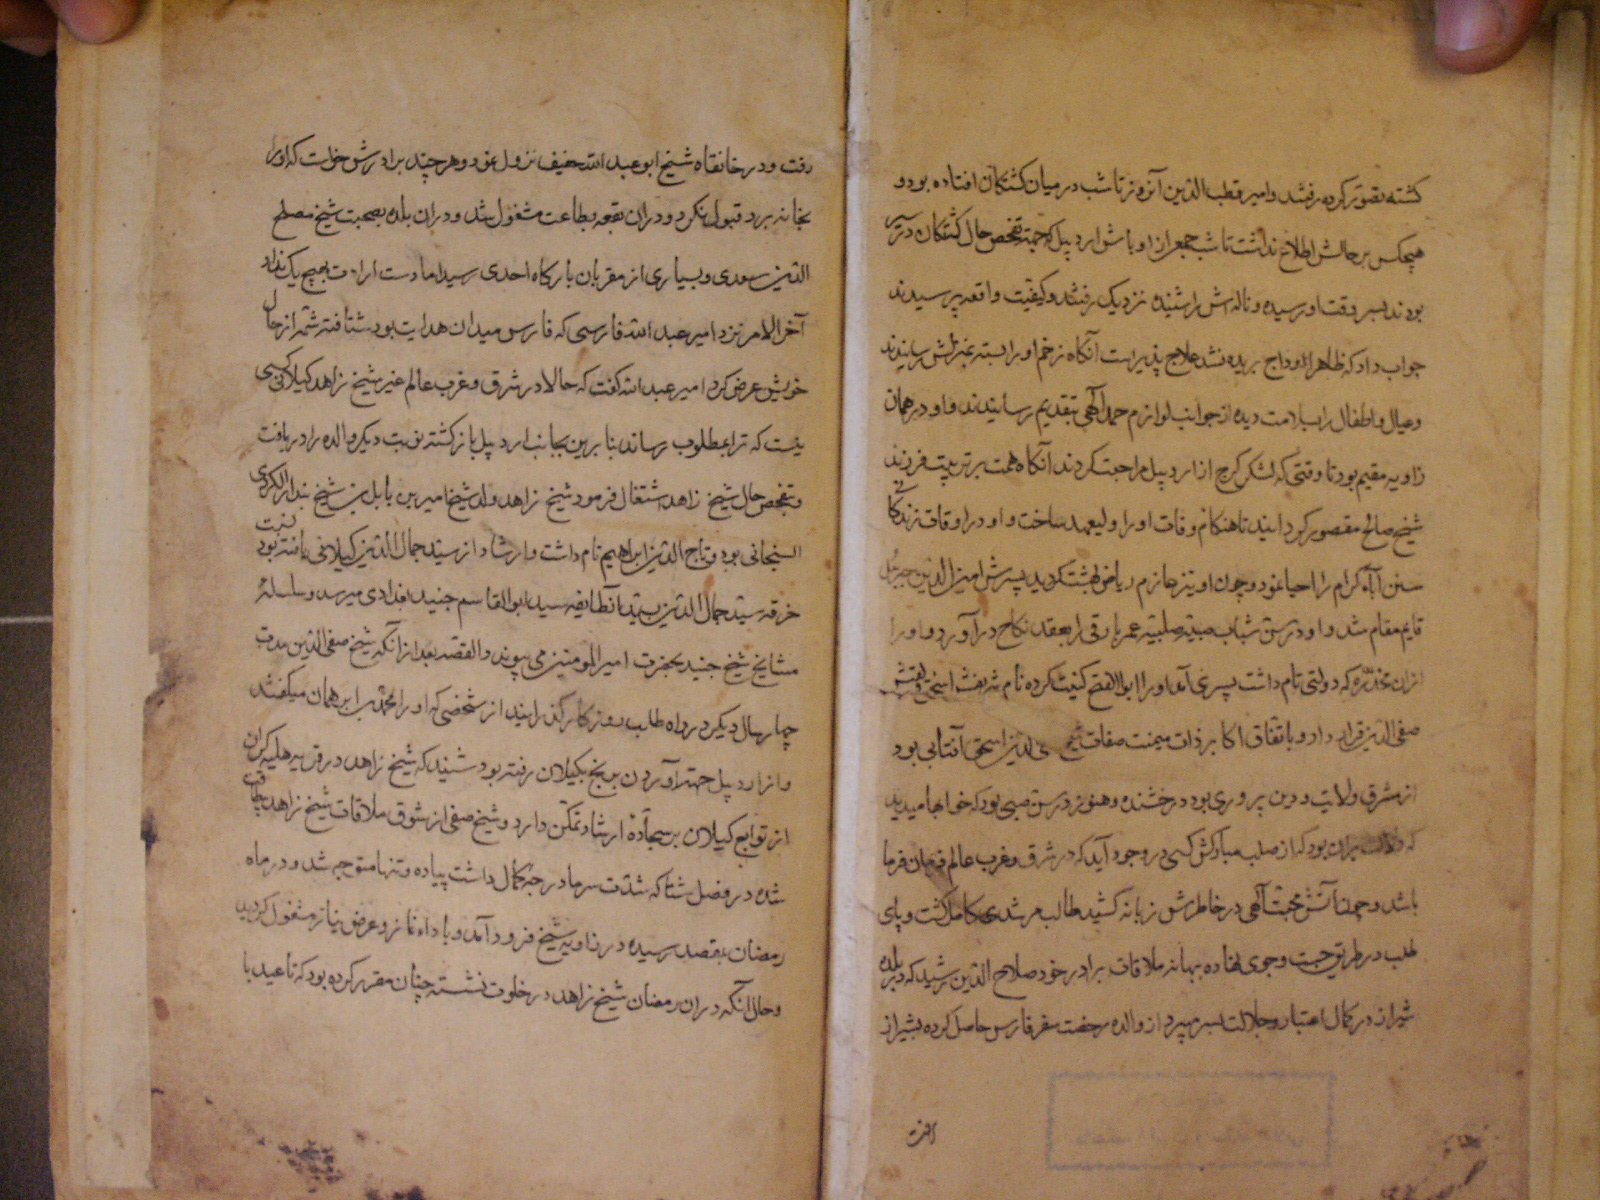 کشته تصور کرده رفتند و امیر قطب الدین آنروز تا شب در میان کشتگان افتاده بود و
هیچکس بر حالش اطلاع نداشت تا شب جمعی از اوباش اردبیل که جهت تفحص حال کشتکان در سیر
بودند بسر وقت او رسیده و ناله اش را شنیده نزدیک رفتند و کیفیت واقعه پرسیدند
جواب داد که ظاهرا اوداج بریده نشد علاج پذیر است آنکاه زخم او را بسته بمنزلش رسانیدند
و عیال و اطفال را بسلامت دیده از جوانب لوازم حمد آلهی بتقدیم رسانیدند و او در همان
زاویه مقیم بود تا وقتی که لشکر کرج از اردبیل مراجعت کردند آنکاه همت بر تربیت فرزند
شیخ صالح مقصور کردانید تا هنکام وفات او را ولیعهد ساخت و او در اوقات زندکانی
سنن آباء کرام را احیا نمود و چون او نیز عازم ریاض بهشت کردید پسرش امین الدین جبرئیل
قایم مقام شد و او در سن شباب صبیه صلبیه عمر بارقی را بعقد نکاح درآورد و او را
از ان مخدره که دولتی نام داشت پسری آمد او را ابوالفتح کنیت کرده نام شریفش اسحق و لقبش
صفی الدین قرار داد و باتفاق اکابر ذات میمنت صفات شیخ صفی الدین اسحق آفتابی بود
از مشرق ولایت و دین پروری بود درخشنده و هنوز در سن صبی بود که خوابها میدید
که دلالت بر ان بود که از صلب مبارکش کسی در وجود آید که در شرق و غرب عالم فرمان فرما
باشد و چون آتش محبت آلهی در خاطرش زبانه کشید طالب مرشدی کامل کشت و پای
طلب در طریق جست و جوی نهاده ببهانه ملاقات برادر خود صلاح الدین رشید که در بلده
شیراز در کمال اعتبار و جلالت بسر میبرد از والده رخصت سفر فارس حاصل کرده بشیراز
رفت
رفت و در خانقاه شیخ ابوعبد الله خفیف نزول نمود و هر چند برادرش خواست که او را
بخانه برد قبول نکرد و در ان بقعه بطاعت مشغول شد و در ان بلده بصحبت شیخ مصلح
الدین سعدی و بسیاری از مقربان بارکاه احدی رسید اما دست ارادت بهیچ یک نداد
آخر الامر نزد امیر عبد الله فارسی که فارس میدان هدایت بود شتافته شمه از حال
خویش عرض کرد امیر عبد الله کفت که حالا در شرق و غرب عالم غیر شیخ زاهد کیلانی کسی
نیست که ترا بمطلوب رساند بنا برین بجانب اردبیل باز کشته نوبت دیکر والده را دریافت
و بتفحص حال شیخ زاهد اشتغال فرمود شیخ زاهد ولد شیخ امیر بن بابل بن شیخ بندار الکردی
السنجانی بود و تاج الدین ابراهیم نام داشت و ارشاد از سید جمال الدین کیلانی یافته بود نسبت
خرقه سید جمال الدین بسید الطایفه سید ابوالقاسم جنید بغدادی میرسد و سلسله
مشایخ شیخ جنید بحضرت امیر المومنین می پیوندد القصه بعد از آنکه شیخ صفی الدین مدت
چهار سال دیکر در راه طلب روزکار کذرانید از شخصی که او را محمد بن ابراهیمان میکفتند
و از اردبیل جهت آوردن برنج بکیلان رفته بود شنید که شیخ زاهد در قریه هلیه کران
از توابع کیلان بر سجاده ارشاد تمکن دارد و شیخ صفی از شوق ملاقات شیخ زاهد بیطاقت
شده در فصل شتا که شدت سرما درجه کمال داشت پیاده و تنها متوجه شد و در ماه
رمضان بمقصد رسیده در زاویه شیخ فرود آمد و باداء نماز و عرض نیاز مشغول کردید
و حال آنکه در ان رمضان شیخ زاهد در خلوت نشسته چنان مقرر کرده بود که تا عید با